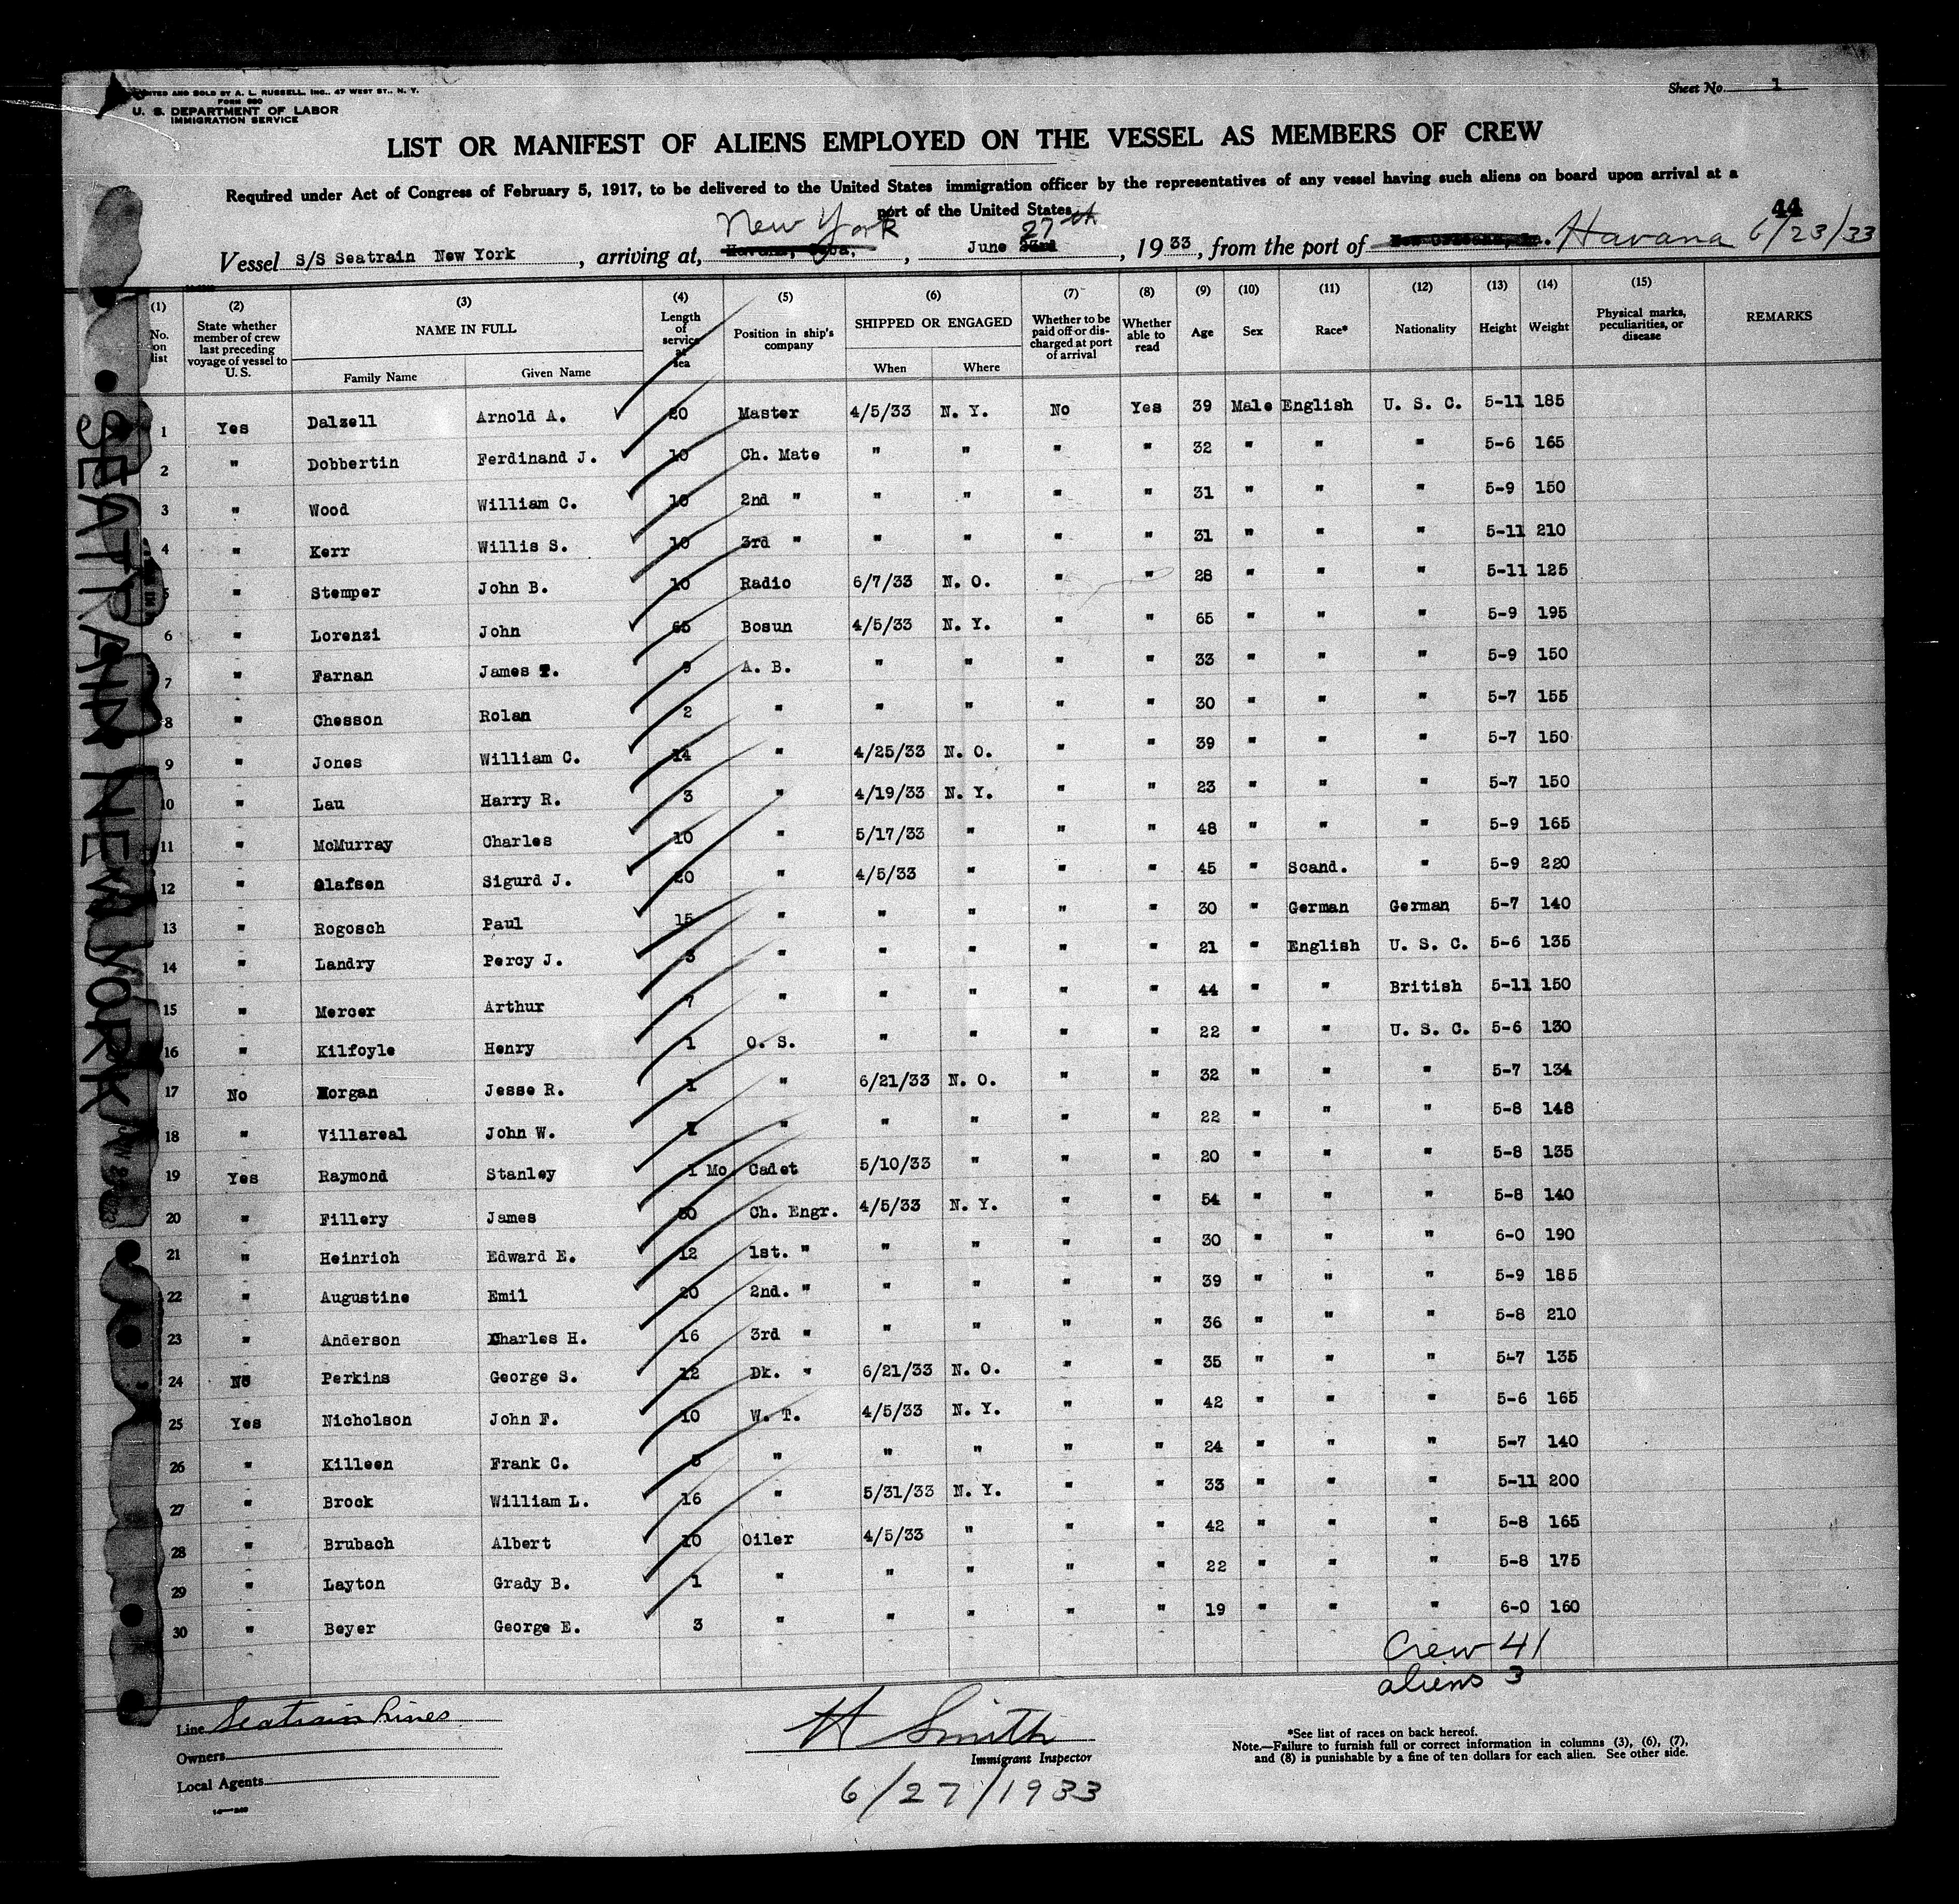 PRINTED AND SOLD BY A. L. RUSSELL, INC., 47 WEST ST., N. Y.
FORM 680
U. S. DEPARTMENT OF LABOR
IMMIGRATION SERVICE
Sheet No. 1
LIST OR MANIFEST OF ALIENS EMPLOYED ON THE VESSEL AS MEMBERS OF CREW
Required under Act of Congress of February 5, 1917, to be delivered to the United States immigration officer by the representatives of any vessel having such aliens on board upon arrival at a
port of the United States
44
Vessel S/S Seatrain New York, arriving at, New York, June 27th, 1933, from the port of Havana 6/23/33
(1) (2) (3) (4) (5) (6) (7) (8) (9) (10) (11) (12) (13) (14) (15)
No. on list State whether member of crew last preceding voyage of vessel to U. S. NAME IN FULL Length of service at sea Position in ship's company SHIPPED OR ENGAGED Whether to be paid off or discharged at port of arrival Whether able to read Age Sex Race* Nationality Height Weight Physical marks, peculiarities, or disease REMARKS
Family Name Given Name When Where
1 Yes Dalzell Arnold A. 20 Master 4/5/33 N. Y. No Yes 39 Male English U. S. C. 5-11 185
2 " Dobbertin Ferdinand J. 10 Ch. Mate " " " " 32 " " " 5-6 165
3 " Wood William C. 10 2nd " " " " " 31 " " " 5-9 150
4 " Kerr Willis S. 10 3rd " " " " " 31 " " " 5-11 210
5 " Stemper John B. 10 Radio 6/7/33 N. O. " " 28 " " " 5-11 125
6 " Lorenzi John 65 Bosun 4/5/33 N. Y. " " 65 " " " 5-9 195
7 " Farnan James T. 9 A. B. " " " " 33 " " " 5-9 150
8 " Chesson Rolan 2 " " " " " 30 " " " 5-7 155
9 " Jones William C. 14 " 4/25/33 N. O. " " 39 " " " 5-7 150
10 " Lau Harry R. 3 " 4/19/33 N. Y. " " 23 " " " 5-7 150
11 " McMurray Charles 10 " 5/17/33 " " " 48 " " " 5-9 165
12 " Olafsen Sigurd J. 20 " 4/5/33 " " " 45 " Scand. " 5-9 220
13 " Rogosch Paul 15 " " " " " 30 " German German 5-7 140
14 " Landry Percy J. 3 " " " " " 21 " English U. S. C. 5-6 135
15 " Mercer Arthur 7 " " " " " 44 " " British 5-11 150
16 " Kilfoyle Henry 1 O. S. " " " " 22 " " U. S. C. 5-6 130
17 No Morgan Jesse R. 1 " 6/21/33 N. O. " " 32 " " " 5-7 134
18 " Villareal John W. 1 " " " " " 22 " " " 5-8 148
19 Yes Raymond Stanley 1 Mo. Cadet 5/10/33 " " " 20 " " " 5-8 135
20 " Fillery James 30 Ch. Engr. 4/5/33 N. Y. " " 54 " " " 5-8 140
21 " Heinrich Edward E. 12 1st. " " " " " 30 " " " 6-0 190
22 " Augustine Emil 20 2nd. " " " " " 39 " " " 5-9 185
23 " Anderson Charles H. 16 3rd " " " " " 36 " " " 5-8 210
24 No Perkins George S. 12 Dk. " 6/21/33 N. O. " " 35 " " " 5-7 135
25 Yes Nicholson John F. 10 W. T. 4/5/33 N. Y. " " 42 " " " 5-6 165
26 " Killeen Frank C. " " " " " 24 " " " 5-7 140
27 " Brock William L. 16 " 5/31/33 N. Y. " " 33 " " " 5-11 200
28 " Brubach Albert 10 Oiler 4/5/33 " " " 42 " " " 5-8 165
29 " Layton Grady B. 1 " " " " " 22 " " " 5-8 175
30 " Beyer George E. 3 " " " " " 19 " " " 6-0 160
Crew 41
aliens 3
Line Seatrain Lines
Owners
Local Agents
H Smith
Immigrant Inspector
6/27/1933
*See list of races on back hereof.
Note.—Failure to furnish full or correct information in columns (3), (6), (7),
and (8) is punishable by a fine of ten dollars for each alien. See other side.
SEATRAIN NEW YORK